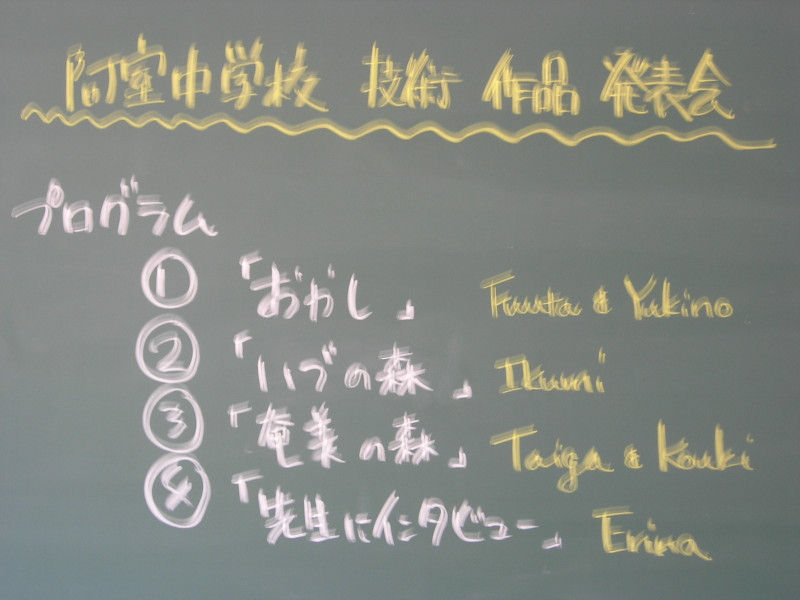 阿室中学校 技術 作品 発表会
プログラム
① 「おがし」 Fuuta & Yukino
② 「いづの森」 Ikumi
③ 「奄美の森」 Taiga & Kouki
④ 「先生にインタビュー」 Erina